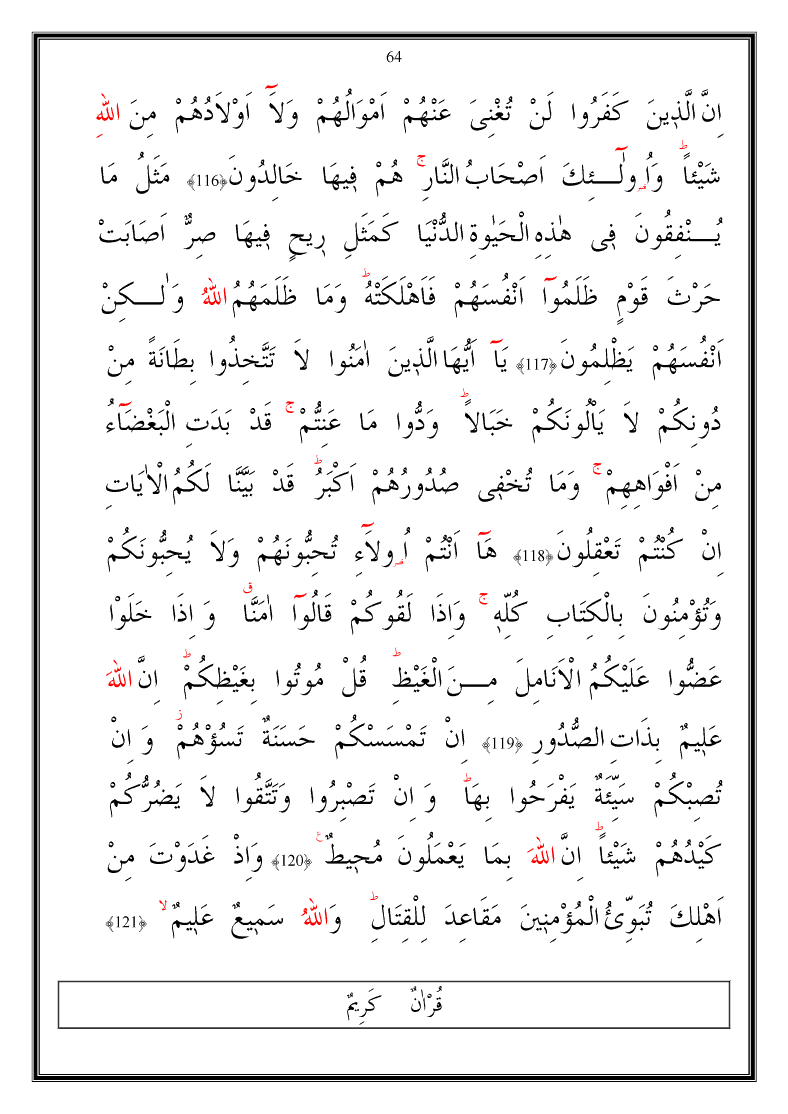 64
اِنَّ الَّذٖينَ كَفَرُوا لَنْ تُغْنِىَ عَنْهُمْ اَمْوَالُهُمْ وَلَٓا اَوْلَادُهُمْ مِنَ اللّٰهِ
شَيْـًٔاؕ وَاُو۬لٰٓـئِكَ اَصْحَابُ النَّارِۚ هُمْ فٖيهَا خَالِدُونَ ﴿116﴾ مَثَلُ مَا
يُـنْفِقُونَ فٖى هٰذِهِ الْحَيٰوةِ الدُّنْيَا كَمَثَلِ رٖيحٍ فٖيهَا صِرٌّ اَصَابَتْ
حَرْثَ قَوْمٍ ظَلَمُٓوا اَنْفُسَهُمْ فَاَهْلَكَتْهُؕ وَمَا ظَلَمَهُمُ اللّٰهُ وَلٰـكِنْ
اَنْفُسَهُمْ يَظْلِمُونَ ﴿117﴾ يَٓا اَيُّهَا الَّذٖينَ اٰمَنُوا لَا تَتَّخِذُوا بِطَانَةً مِنْ
دُونِكُمْ لَا يَاْلُونَكُمْ خَبَالًاؕ وَدُّوا مَا عَنِتُّمْۚ قَدْ بَدَتِ الْبَغْضَٓاءُ
مِنْ اَفْوَاهِهِمْۚ وَمَا تُخْفٖى صُدُورُهُمْ اَكْبَرُؕ قَدْ بَيَّنَّا لَكُمُ الْاٰيَاتِ
اِنْ كُنْتُمْ تَعْقِلُونَ ﴿118﴾ هَٓا اَنْتُمْ اُو۬لَٓاءِ تُحِبُّونَهُمْ وَلَا يُحِبُّونَكُمْ
وَتُؤْمِنُونَ بِالْكِتَابِ كُلِّهٖۚ وَاِذَا لَقُوكُمْ قَالُٓوا اٰمَنَّاࣗ وَاِذَا خَلَوْا
عَضُّوا عَلَيْكُمُ الْاَنَامِلَ مِـنَ الْغَيْظِؕ قُلْ مُوتُوا بِغَيْظِكُمْؕ اِنَّ اللّٰهَ
عَلٖيمٌ بِذَاتِ الصُّدُورِ ﴿119﴾ اِنْ تَمْسَسْكُمْ حَسَنَةٌ تَسُؤْهُمْؗ وَاِنْ
تُصِبْكُمْ سَيِّئَةٌ يَفْرَحُوا بِهَاؕ وَاِنْ تَصْبِرُوا وَتَتَّقُوا لَا يَضُرُّكُمْ
كَيْدُهُمْ شَيْـًٔاؕ اِنَّ اللّٰهَ بِمَا يَعْمَلُونَ مُحٖيطٌࣖ ﴿120﴾ وَاِذْ غَدَوْتَ مِنْ
اَهْلِكَ تُبَوِّئُ الْمُؤْمِنٖينَ مَقَاعِدَ لِلْقِتَالِؕ وَاللّٰهُ سَمٖيعٌ عَلٖيمٌۙ ﴿121﴾
قُرْاٰنٌ كَرِيمٌ